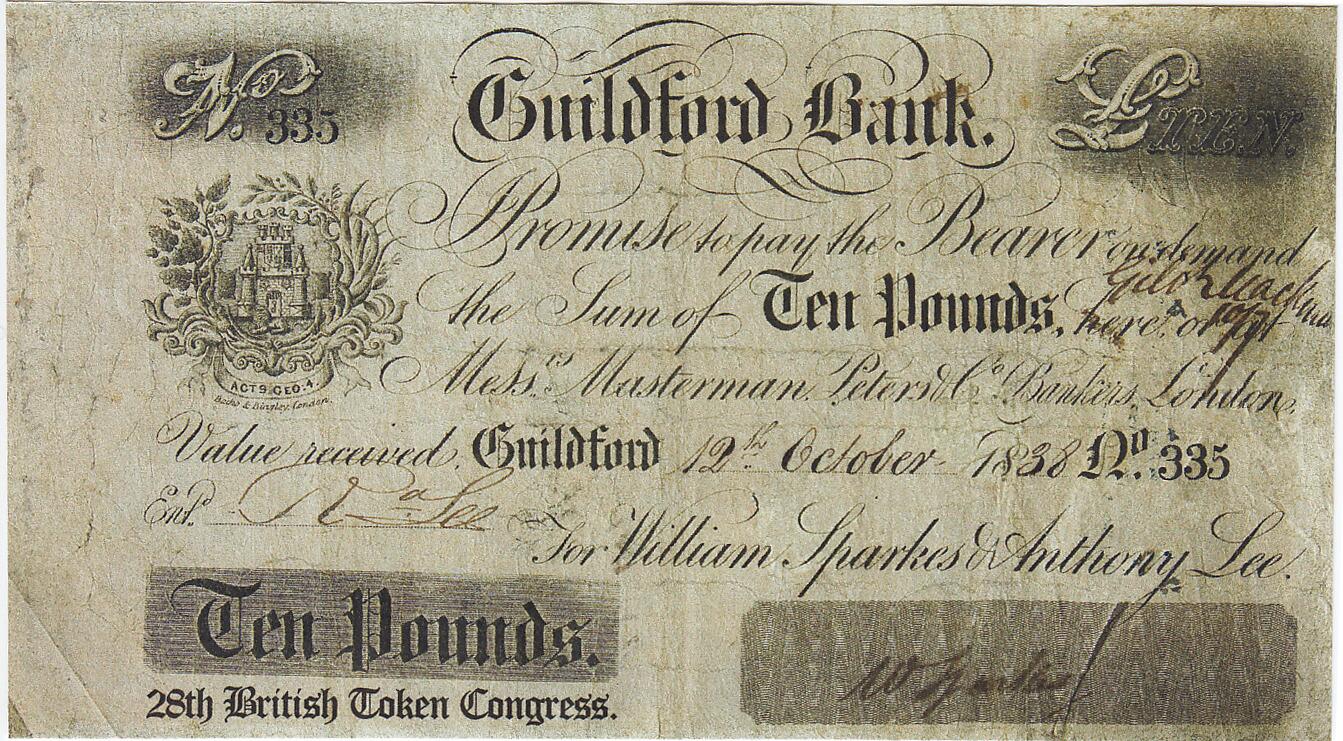 No. 335
Guildford Bank.
£TEN.
Promise to pay the Bearer on demand
the Sum of Ten Pounds, here, or at
Messrs. Masterman, Peters & Co. Bankers, London,
ACT 9. GEO. 4.
Value received. Guildford 12th October 1838 No. 335
Entd. Rd. Lee
For William Sparkes & Anthony Lee.
Ten Pounds.
W Sparkes
28th British Token Congress.